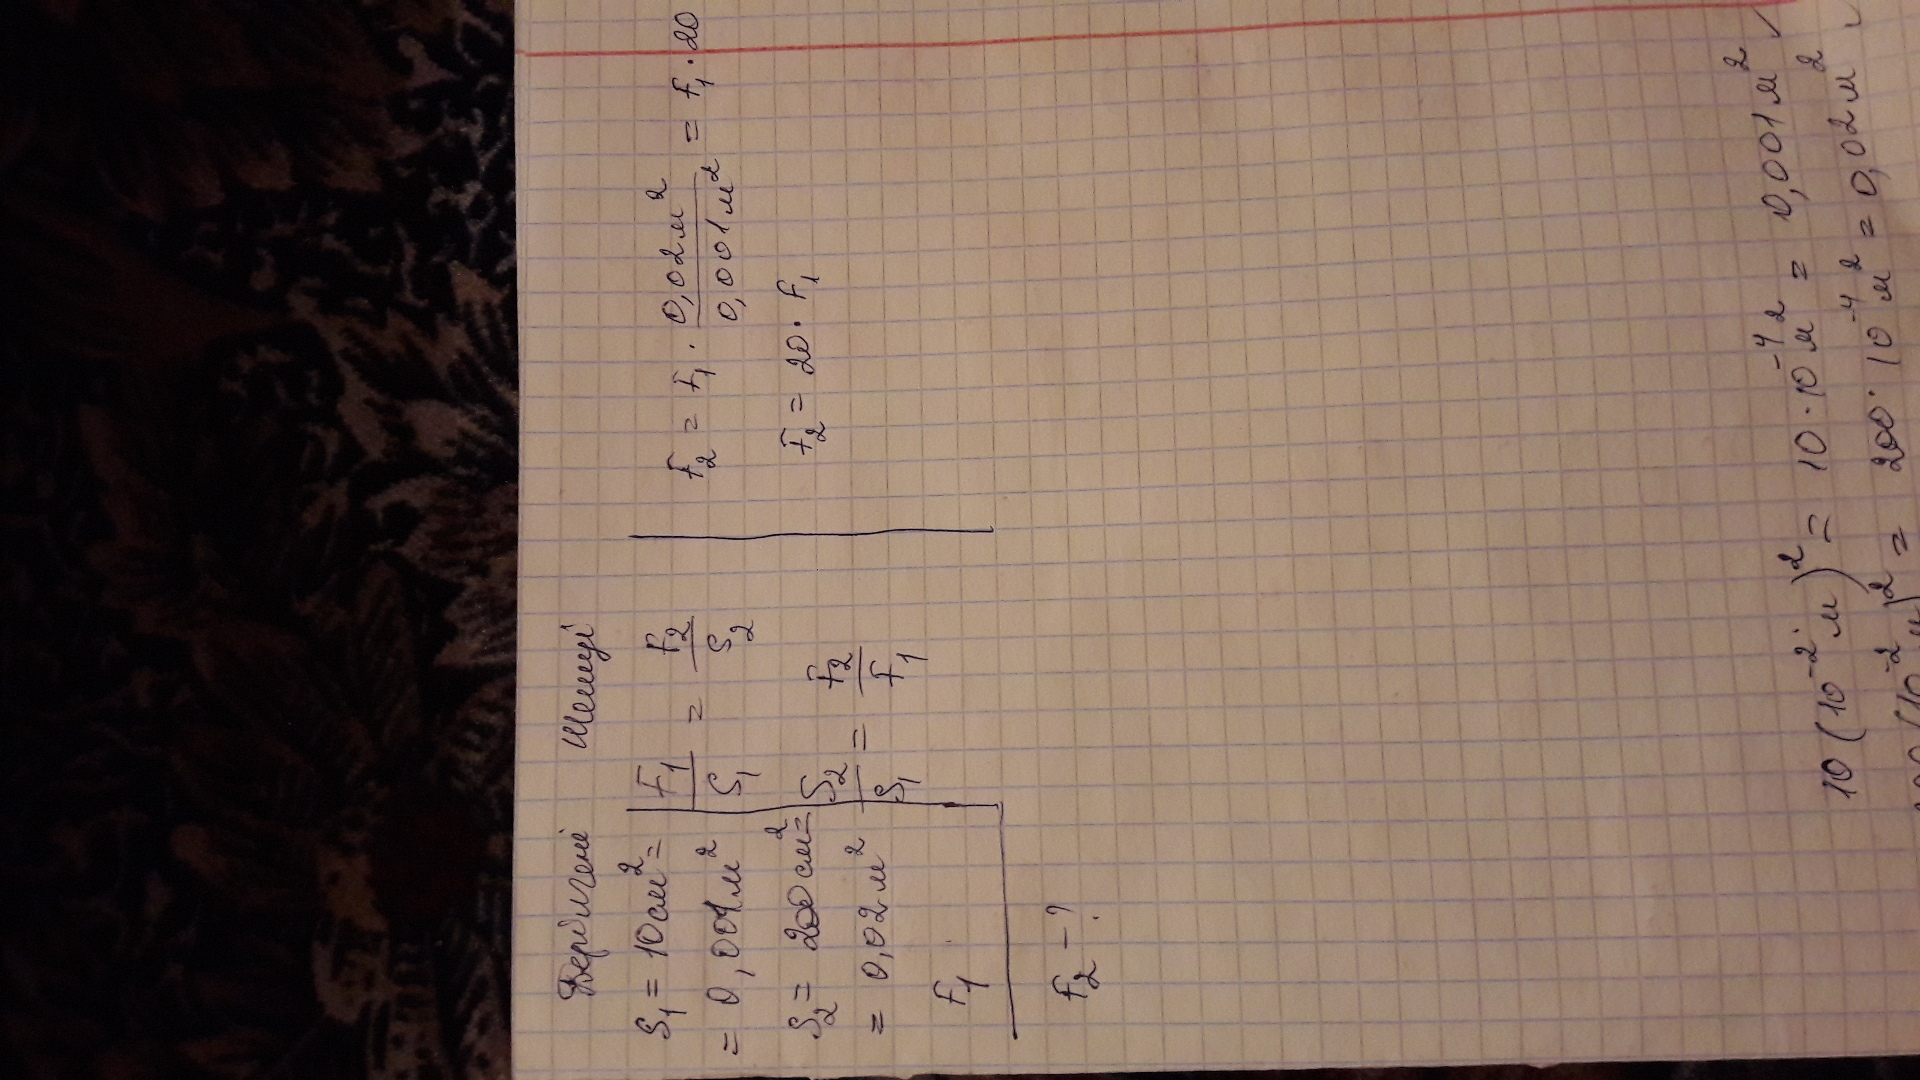 Берілгені Шешуі
S₁ = 10 см² =
= 0,001 м²
S₂ = 200 см² =
= 0,02 м²
F₁
F₂ - ?
F₁/S₁ = F₂/S₂
S₂/S₁ = F₂/F₁
F₂ = F₁ · 0,02 м²/0,001 м² = F₁ · 20
F₂ = 20 · F₁
10 (10⁻² м)² = 10 · 10⁻⁴ м² = 0,001 м² ✓
200 (10⁻² м)² = 200 · 10⁻⁴ м² = 0,02 м² ✓